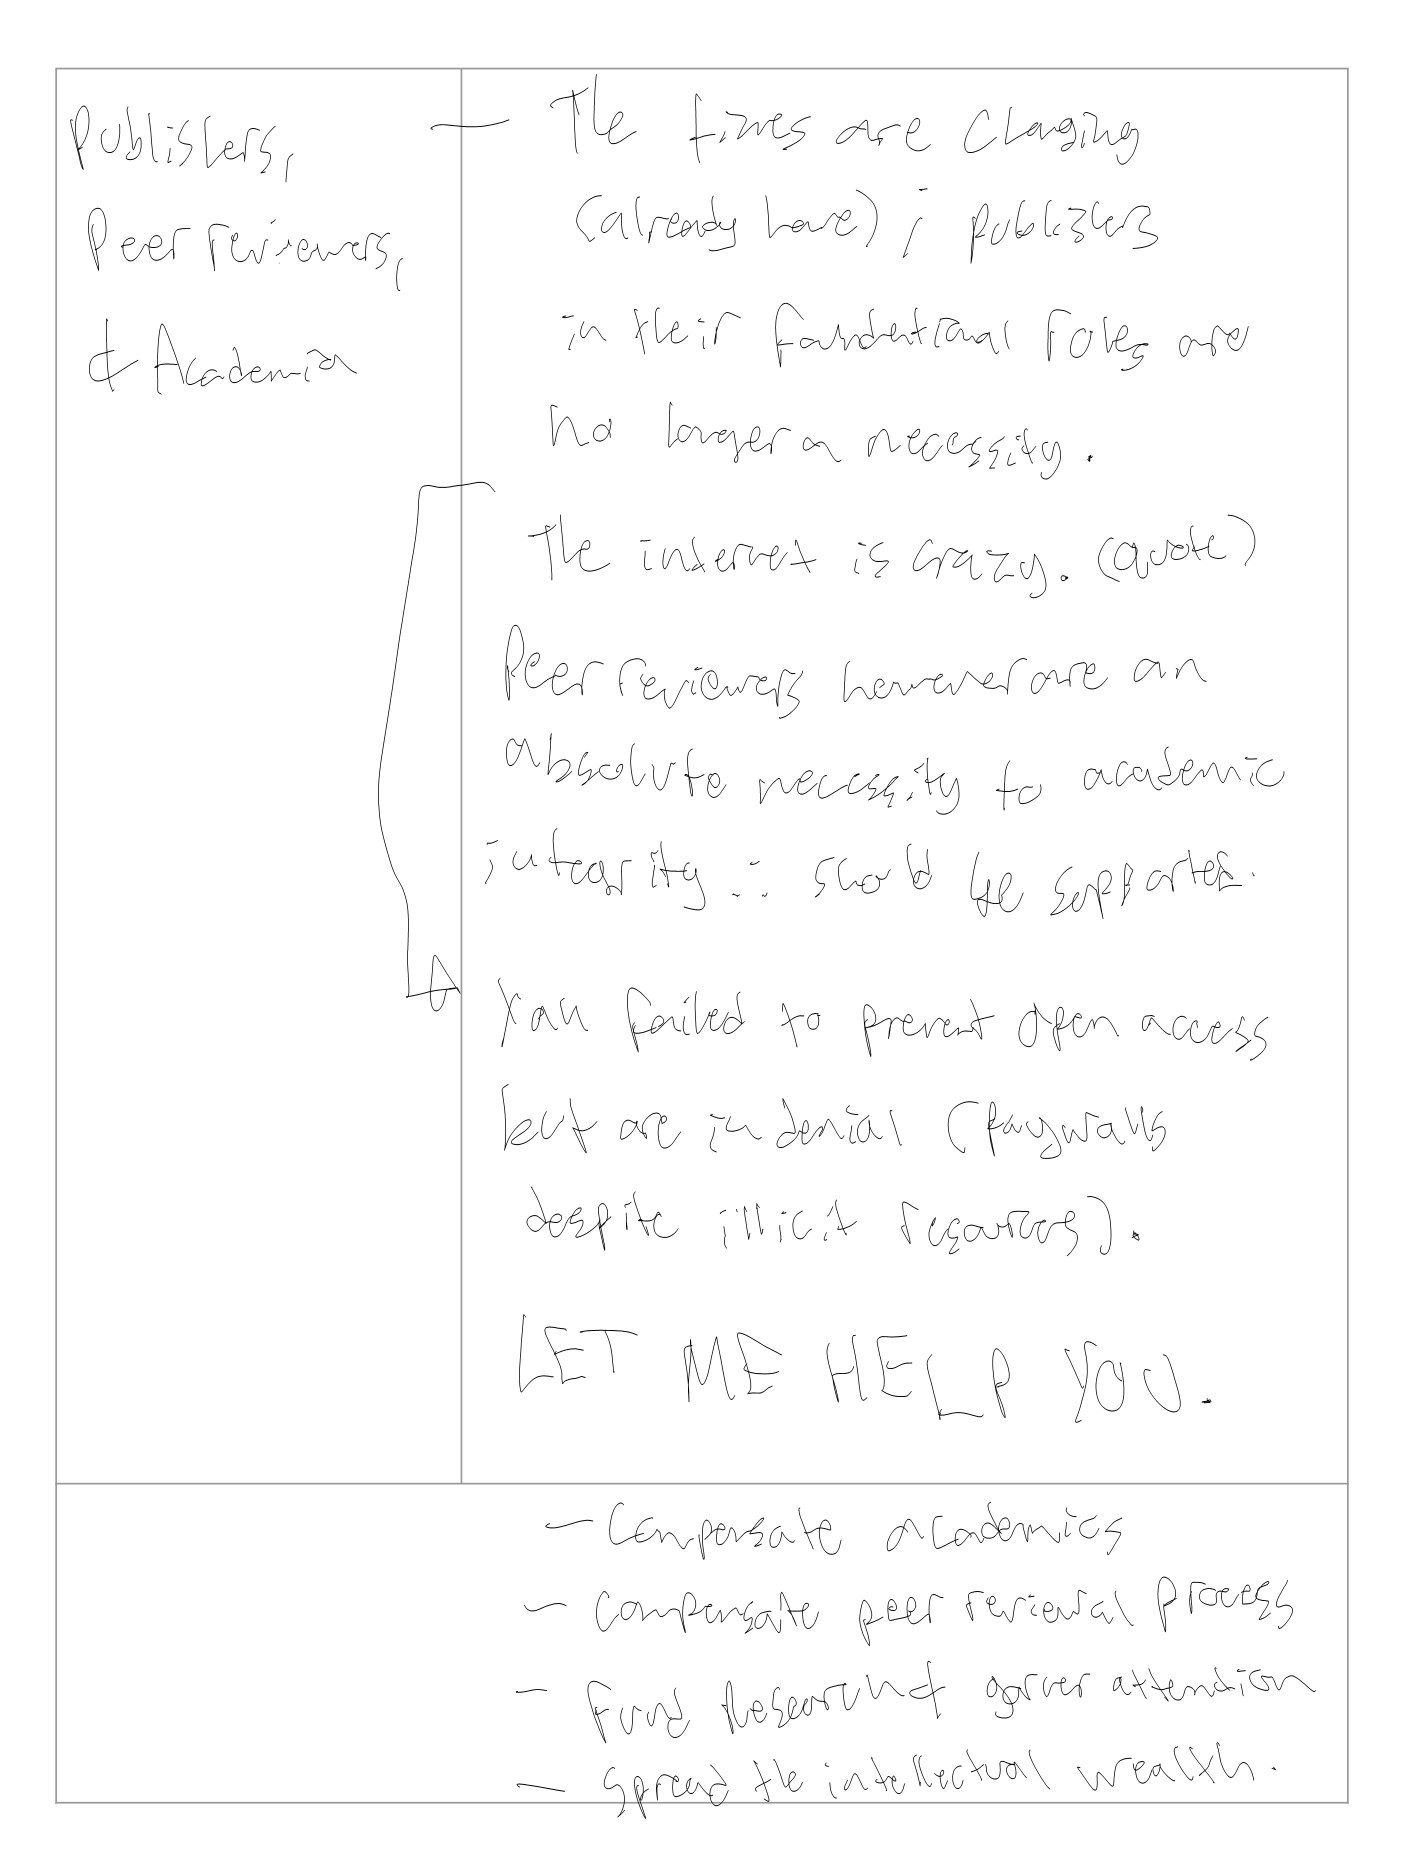 Publishers,
Peer reviewers,
& Academia
— The times are changing
(already have); publishers
in their foundational roles are
no longer a necessity.
The internet is crazy. (quote)
Peer reviewers however are an
absolute necessity to academic
integrity ∴ should be supported.
You failed to prevent open access
but are in denial (paywalls
despite illicit resources).
LET ME HELP YOU.
— Compensate academics
— Compensate peer reviewal process
— Fund Research & garner attention
— Spread the intellectual wealth.